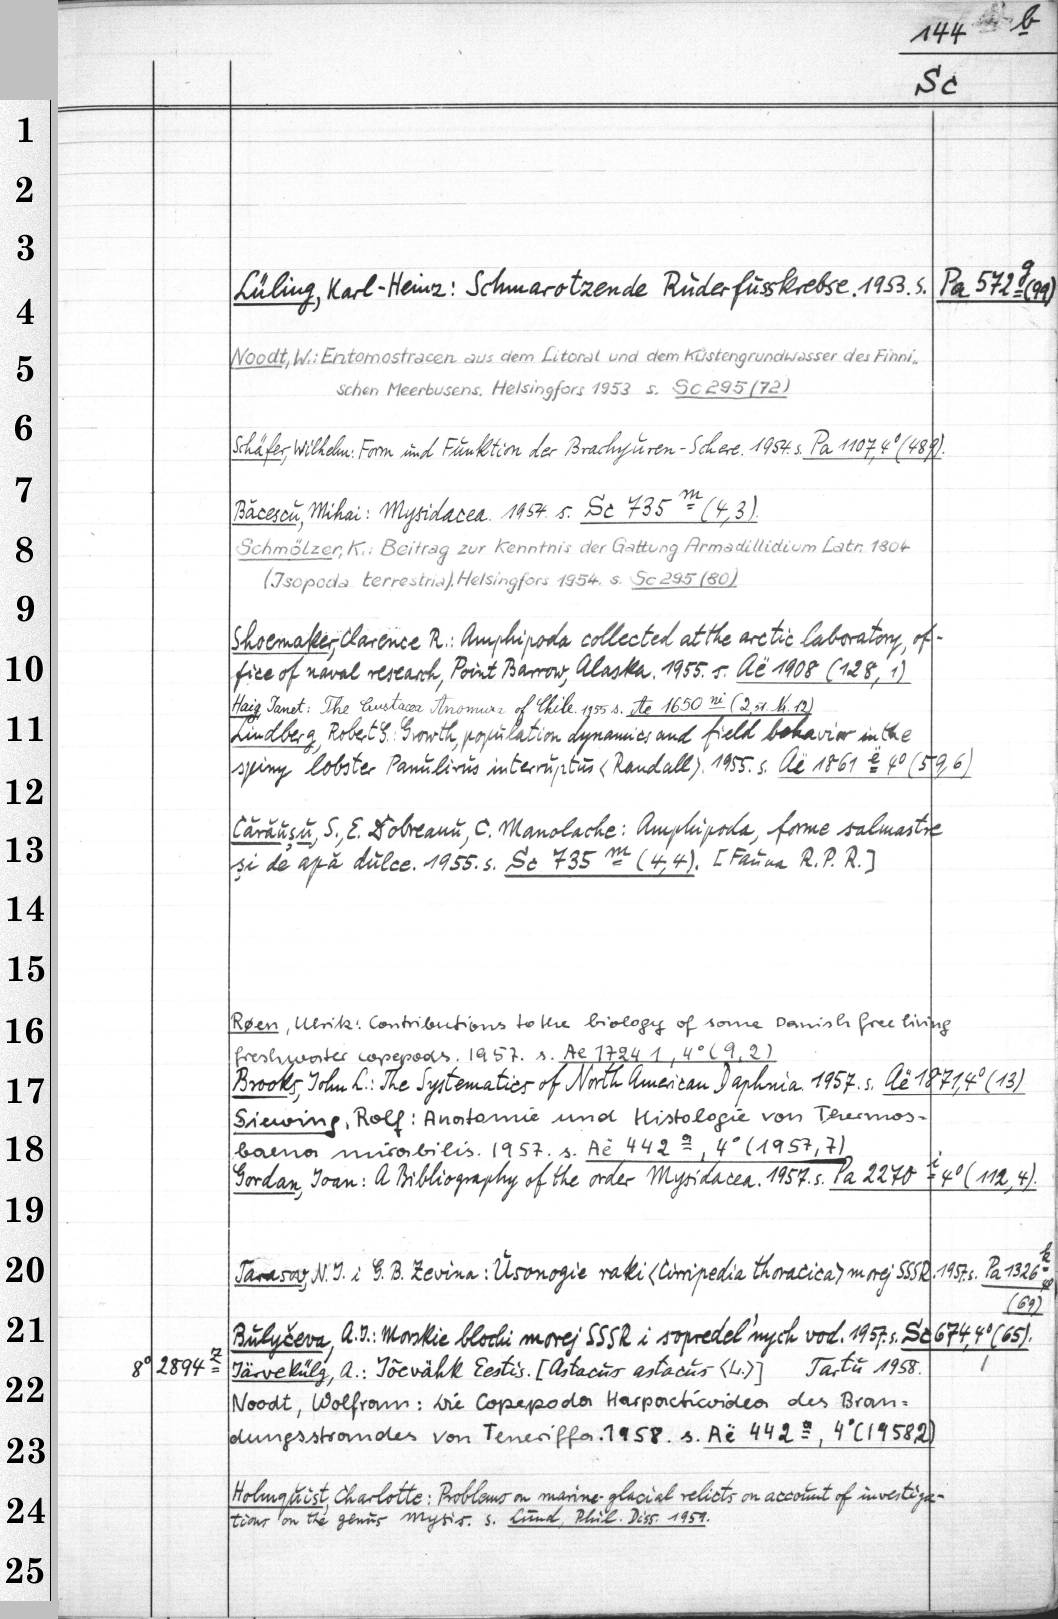 144 b
Sc
1
2
3
Lüling, Karl-Heinz: Schmarotzende Ruderfusskrebse. 1953. s. Pa 572 g (99)
4
Noodt, W.: Entomostracen aus dem Litoral und dem Küstengrundwasser des Finni-
5
schen Meerbusens. Helsingfors 1953 s. Sc 295 (72)
6
Schäfer, Wilhelm: Form und Funktion der Brachyuren-Schere. 1954. s. Pa 1107, 4° (489).
7
Băcescu, Mihai: Mysidacea. 1954. s. Sc 735 m (4,3).
8
Schmölzer, K.: Beitrag zur Kenntnis der Gattung Armadillidium Latr. 1804
(Isopoda terrestria). Helsingfors 1954. s. Sc 295 (80)
9
Shoemaker, Clarence R.: Amphipoda collected at the arctic laboratory, of-
10
fice of naval research, Point Barrow, Alaska. 1955. s. Aë 1908 (128, 1)
Haig, Janet: The Crustacea Anomura of Chile. 1955 s. Ae 1650 ni (2, 51. N. 12)
11
Lindberg, Robert G.: Growth, population dynamics and field behavior in the
spiny lobster Panulirus interruptus <Randall>. 1955. s. Aë 1861 ë 4° (59,6)
12
Cărăuşu, S., E. Dobreanu, C. Manolache: Amphipoda, forme salmastre
13
şi de apă dulce. 1955. s. Sc 735 m (4,4). [Fauna R.P.R.]
14
15
16
Røen, Ulrik: Contributions to the biology of some Danish free living
freshwater copepods. 1957. s. Ae 1724 1, 4° (9,2)
17
Brooks, John L.: The Systematics of North American Daphnia. 1957. s. Aë 1871, 4° (13)
Siewing, Rolf: Anatomie und Histologie von Thermos-
18
baena mirabilis. 1957. s. Aë 442 a, 4° (1957,7)
Gordan, Joan: A Bibliography of the order Mysidacea. 1957. s. Pa 2270 i 4° (112,4).
19
20
Tarasov, N. I. i G. B. Zevina: Usonogie raki <Cirripedia thoracica> morej SSSR. 1957. s. Pa 1326 k
(69)
21
Bulyčeva, A. I.: Morskie blochi morej SSSR i sopredel'nych vod. 1957. s. Sc 674, 4° (65).
8° 2894 n Järvekülg, A.: Jõevähk Eestis. [Astacus astacus <L.>] Tartu 1958. 1
22
Noodt, Wolfram: Die Copepoda Harpacticoidea des Bran-
23
dungsstrandes von Teneriffa. 1958. s. Aë 442 a, 4° (1958 2)
24
Holmquist, Charlotte: Problems on marine-glacial relicts on account of investiga-
tions on the genus Mysis. s. Lund, Phil. Diss. 1959.
25